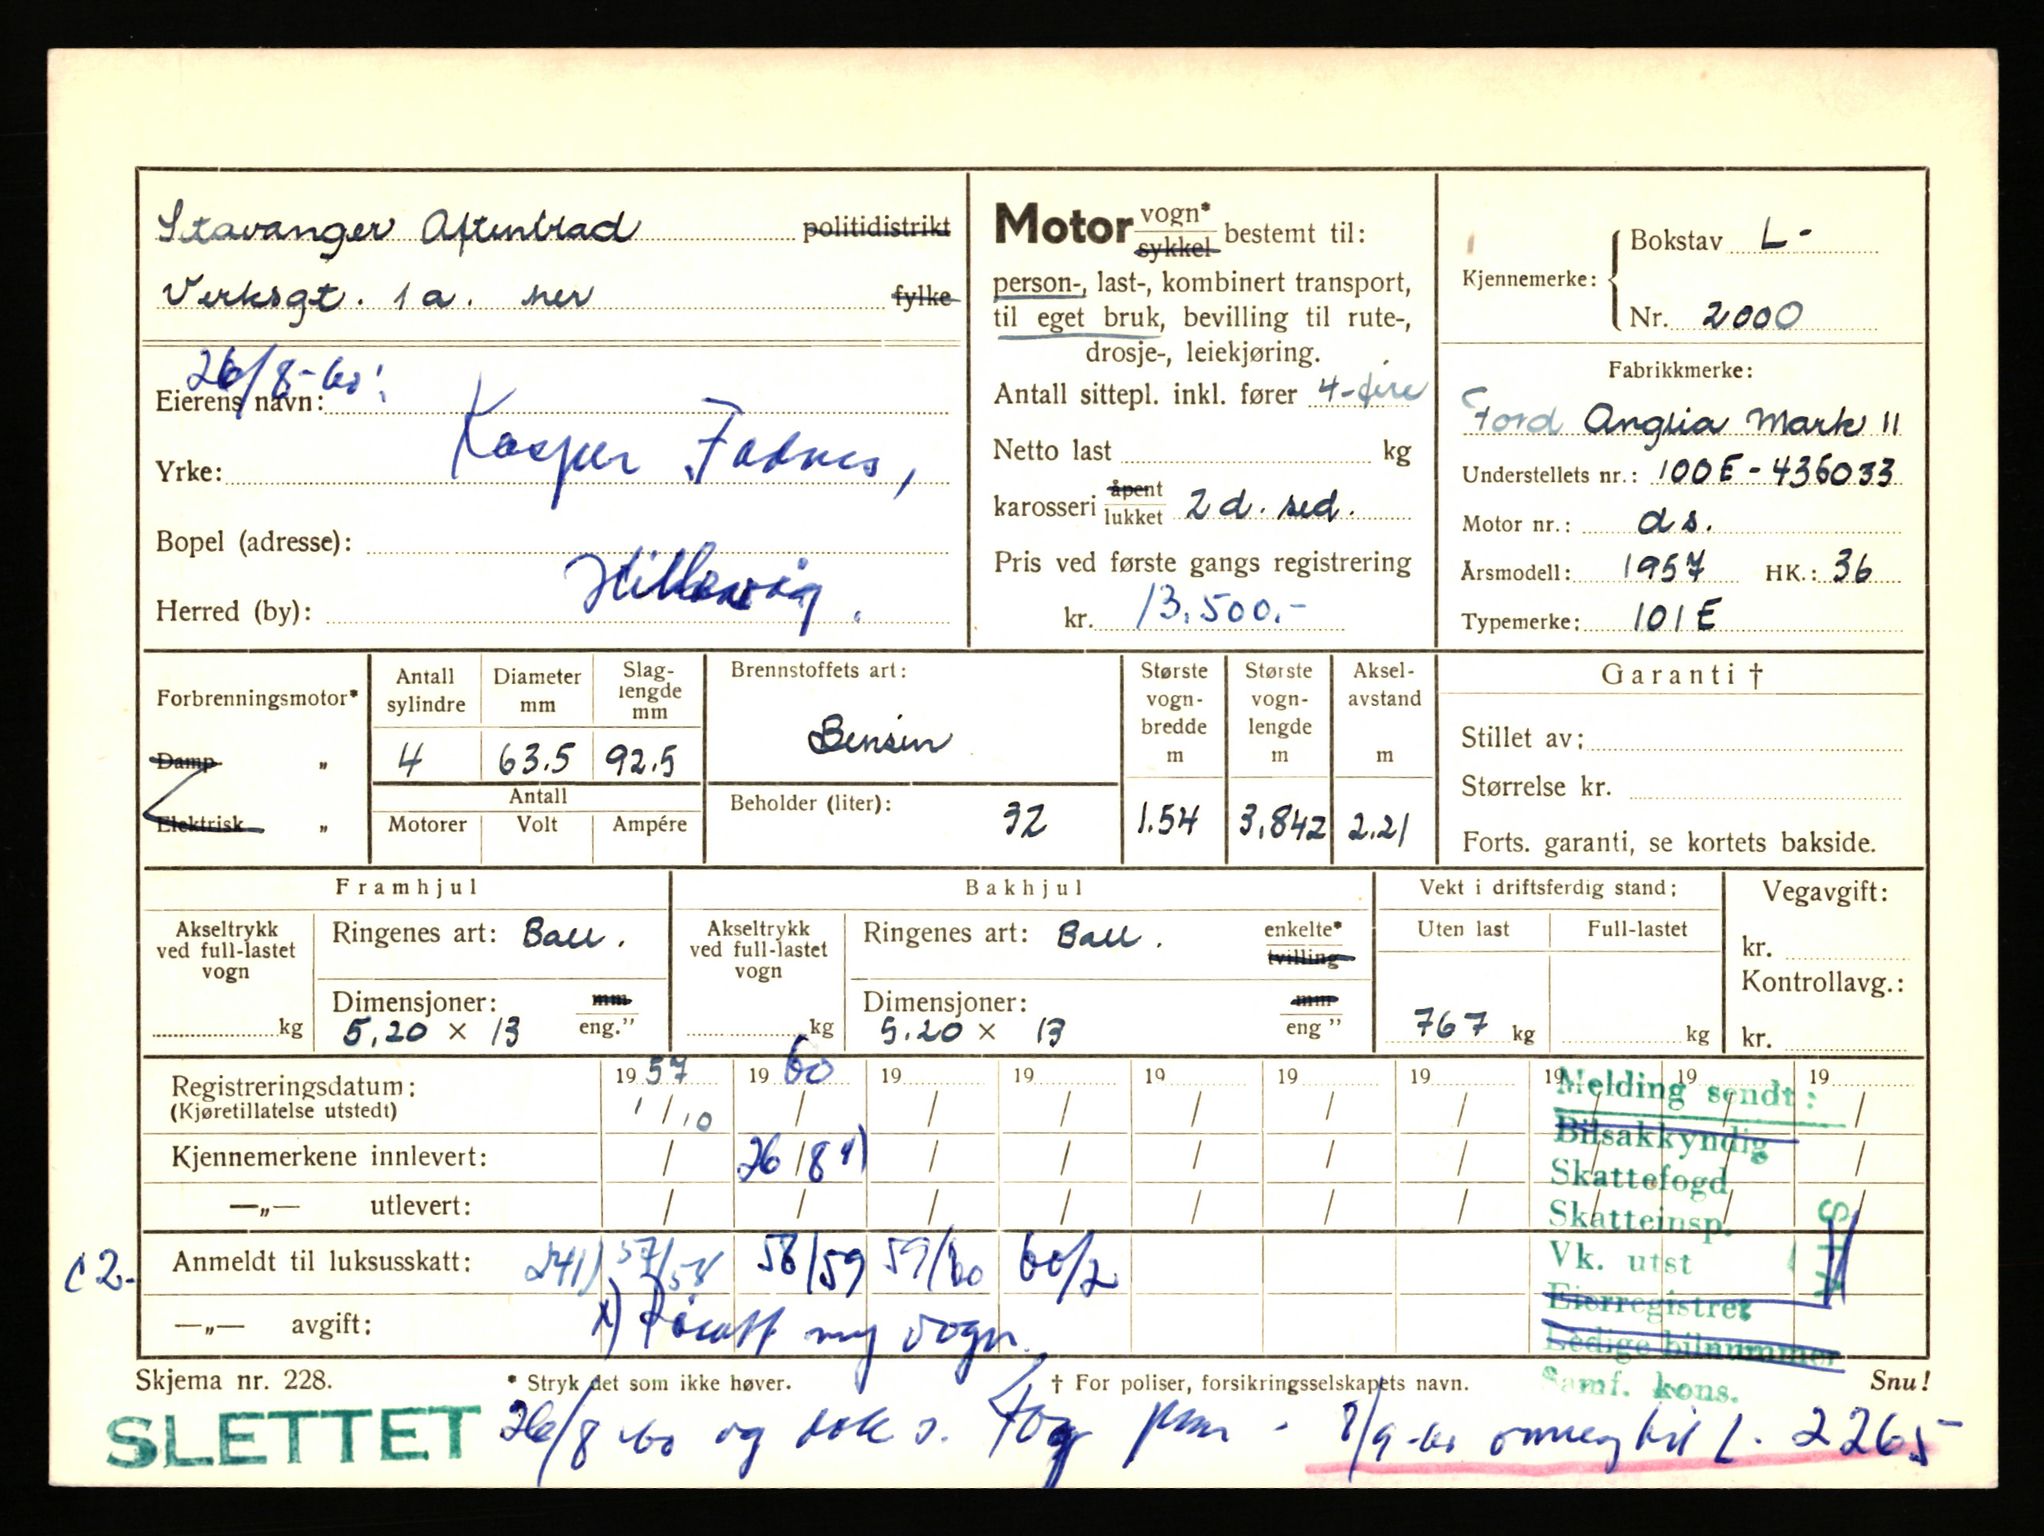 Stavanger Aftenblad politidistrikt
Verksgt. 1a. her fylke
26/8-60:
Eierens navn: Kasper Fadnes,
Yrke:
Bopel (adresse): Hillevåg.
Herred (by):
Motor vogn* sykkel bestemt til:
person-, last-, kombinert transport,
til eget bruk, bevilling til rute-,
drosje-, leiekjøring.
Antall sittepl. inkl. fører 4-fire
Netto last kg
karosseri åpent lukket 2 d. sed.
Pris ved første gangs registrering
kr. 13.500.-
Kjennemerke: Bokstav L-
Nr. 2000
Fabrikkmerke:
Ford Anglia Mark II
Understellets nr.: 100E-436033
Motor nr.: ds.
Årsmodell: 1957 HK.: 36
Typemerke: 101E
Forbrenningsmotor*
Damp "
Elektrisk "
Antall sylindre 4
Diameter mm 63.5
Slaglengde mm 92.5
Antall
Motorer Volt Ampére
Brennstoffets art:
Bensin
Beholder (liter): 32
Største vognbredde m 1.54
Største vognlengde m 3.842
Akselavstand m 2.21
Garanti †
Stillet av:
Størrelse kr.
Forts. garanti, se kortets bakside.
Framhjul
Akseltrykk ved full-lastet vogn kg
Ringenes art: Ball.
Dimensjoner: mm
5,20 × 13 eng."
Bakhjul
Akseltrykk ved full-lastet vogn kg
Ringenes art: Ball. enkelte* tvilling
Dimensjoner: mm
5.20 × 13 eng"
Vekt i driftsferdig stand:
Uten last Full-lastet
767 kg kg
Vegavgift:
kr.
Kontrollavg.:
kr.
Registreringsdatum: 1957 1960 19 19 19 19 19 19 19 19
(Kjøretillatelse utstedt) 1/10 / / / / / / / / /
Kjennemerkene innlevert: / 26/8 x) / / / / / / / /
—„— utlevert: / / / / / / / / / /
c2- Anmeldt til luksusskatt: 241) 57/58 58/59 59/60 60/2
—„— avgift: x) Påsatt ny vogn.
Melding sendt:
Bilsakkyndig
Skattefogd
Skatteinsp.
Vk. utst
Eierregistret
Ledige bilnummer
Samf. kons.
Skjema nr. 228. * Stryk det som ikke høver. † For poliser, forsikringsselskapets navn. Snu!
SLETTET 26/8-60 og 8/9-60 omreg til L. 2265